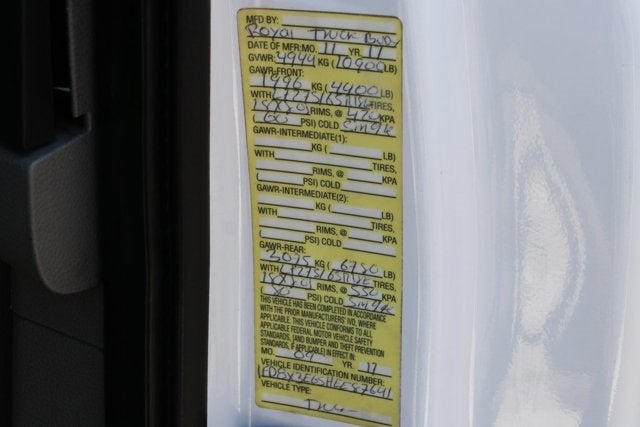 MFD BY:
Royal Truck Body
DATE OF MFR:MO. 11 YR. 17
GVWR: 4944 KG (10900 LB)
GAWR-FRONT:
1996 KG (4400 LB)
WITH LT275/65R18E TIRES,
18X8.0J RIMS, @ 420 KPA
(60 PSI) COLD Single
GAWR-INTERMEDIATE(1):
KG ( LB)
WITH TIRES,
RIMS, @ KPA
( PSI) COLD
GAWR-INTERMEDIATE(2):
KG ( LB)
WITH TIRES,
RIMS, @ KPA
( PSI) COLD
GAWR-REAR:
KG (6780 LB)
WITH LT275/65R18E TIRES,
18X8.0J RIMS, @ 550 KPA
(80 PSI) COLD Single
THIS VEHICLE HAS BEEN COMPLETED IN ACCORDANCE
WITH THE PRIOR MANUFACTURERS' IVD, WHERE
APPLICABLE. THIS VEHICLE CONFORMS TO ALL
APPLICABLE FEDERAL MOTOR VEHICLE SAFETY
STANDARDS, [AND BUMPER AND THEFT PREVENTION
STANDARDS, IF APPLICABLE] IN EFFECT IN:
MO. 09 YR. 17
VEHICLE IDENTIFICATION NUMBER:
VEHICLE TYPE:
Truck